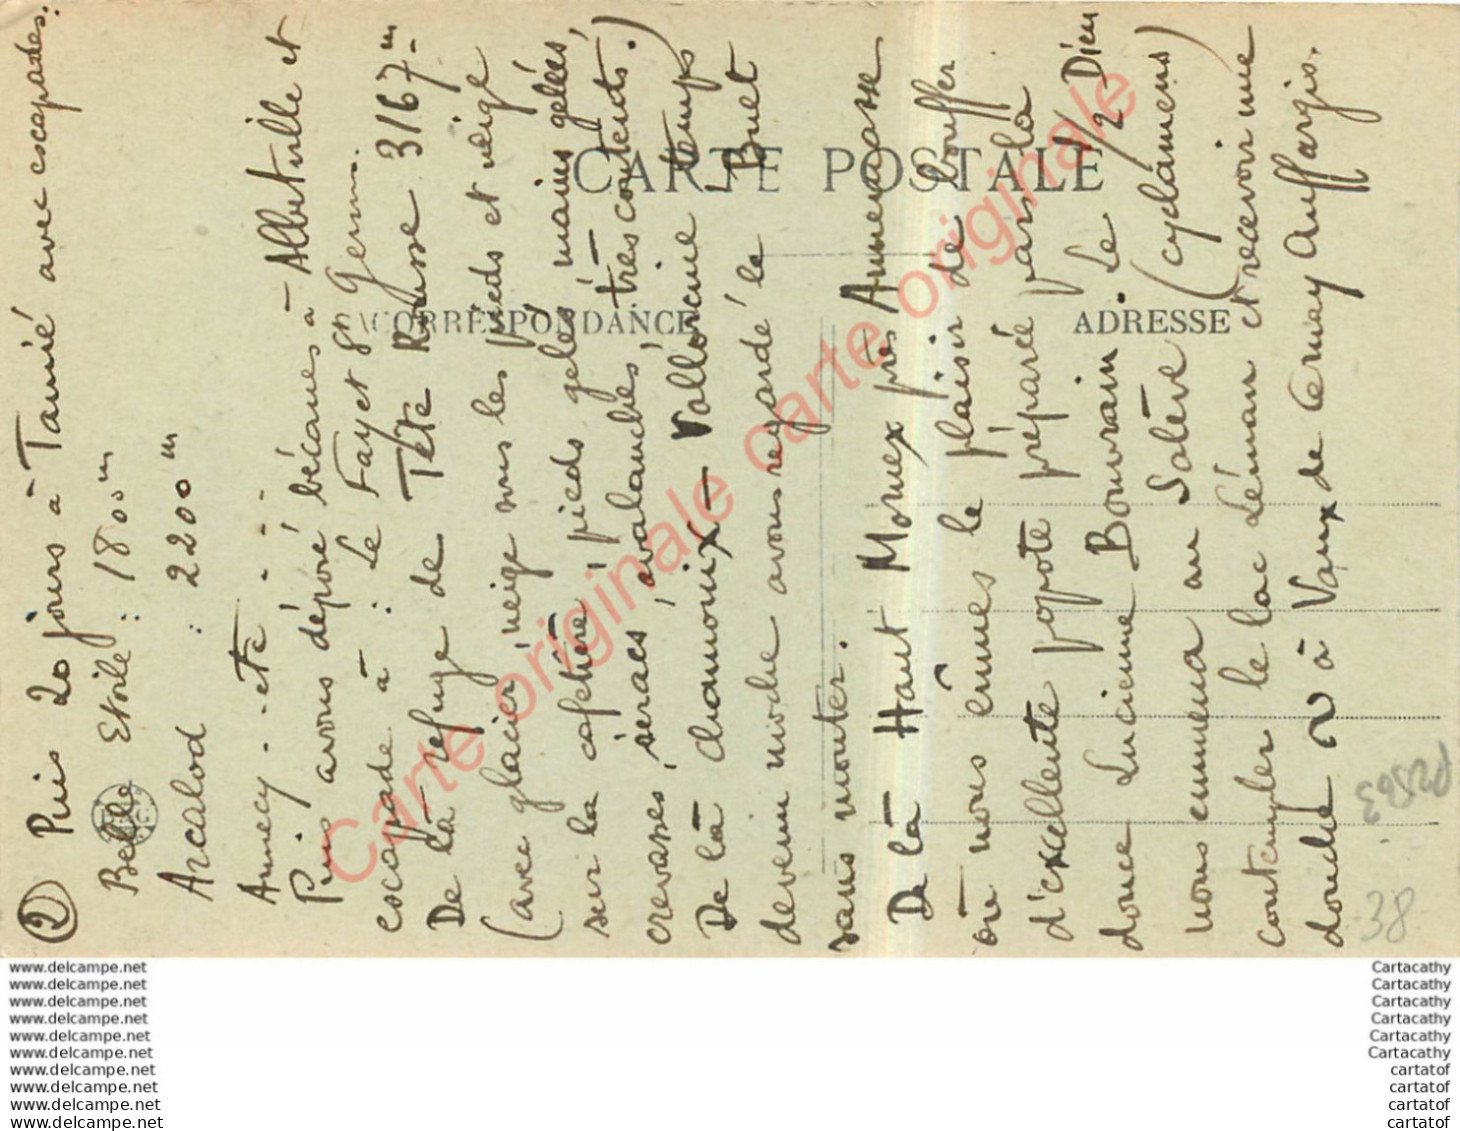 ② Puis 20 jours à Tamié avec escapades :
Belle Etoile : 1800 m
Arcalod : 2200 m
Annecy - - etc - - - -
Puis avons déposé bécanes à Albertville et
escapade à : Le Fayet St Gerv.
De là refuge de Tête Rousse 3167 m
(avec glacier, neige sous les pieds et neige
sur la cafetière, pieds gelés, mains gelées,
crevasses, séracs, avalanches, très contents.)
De là Chamonix - Vallorcine - temps
devenu moche avons regardé le Buet
sans monter.
De là Haut Monex près Annemasse
où nous eûmes le plaisir de bouffer
d'excellente popote préparée par la
douce Lucienne Bouvrain. Le 1/2 Dieu
nous emmena au Salève (cyclamens)
contempler le lac Léman et recevoir une
douche à Vaux de Cernay Auffargis.
CARTE POSTALE
CORRESPONDANCE
ADRESSE
P2563
38
Carte originale carte originale
www.delcampe.net
www.delcampe.net
www.delcampe.net
www.delcampe.net
www.delcampe.net
www.delcampe.net
www.delcampe.net
www.delcampe.net
www.delcampe.net
www.delcampe.net
Cartacathy
Cartacathy
Cartacathy
Cartacathy
Cartacathy
Cartacathy
cartatof
cartatof
cartatof
cartatof